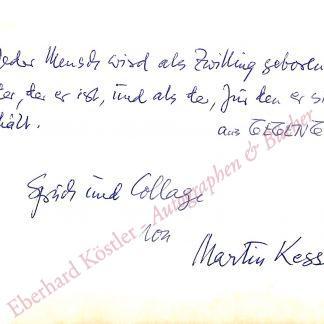 Jeder Mensch wird als Zwilling geboren
der, der er ist, und als der, für den er si
hält.
aus GEGENG
Spruch und Collage
von
Martin Kess
Eberhard Köstler - Autographen & Bücher